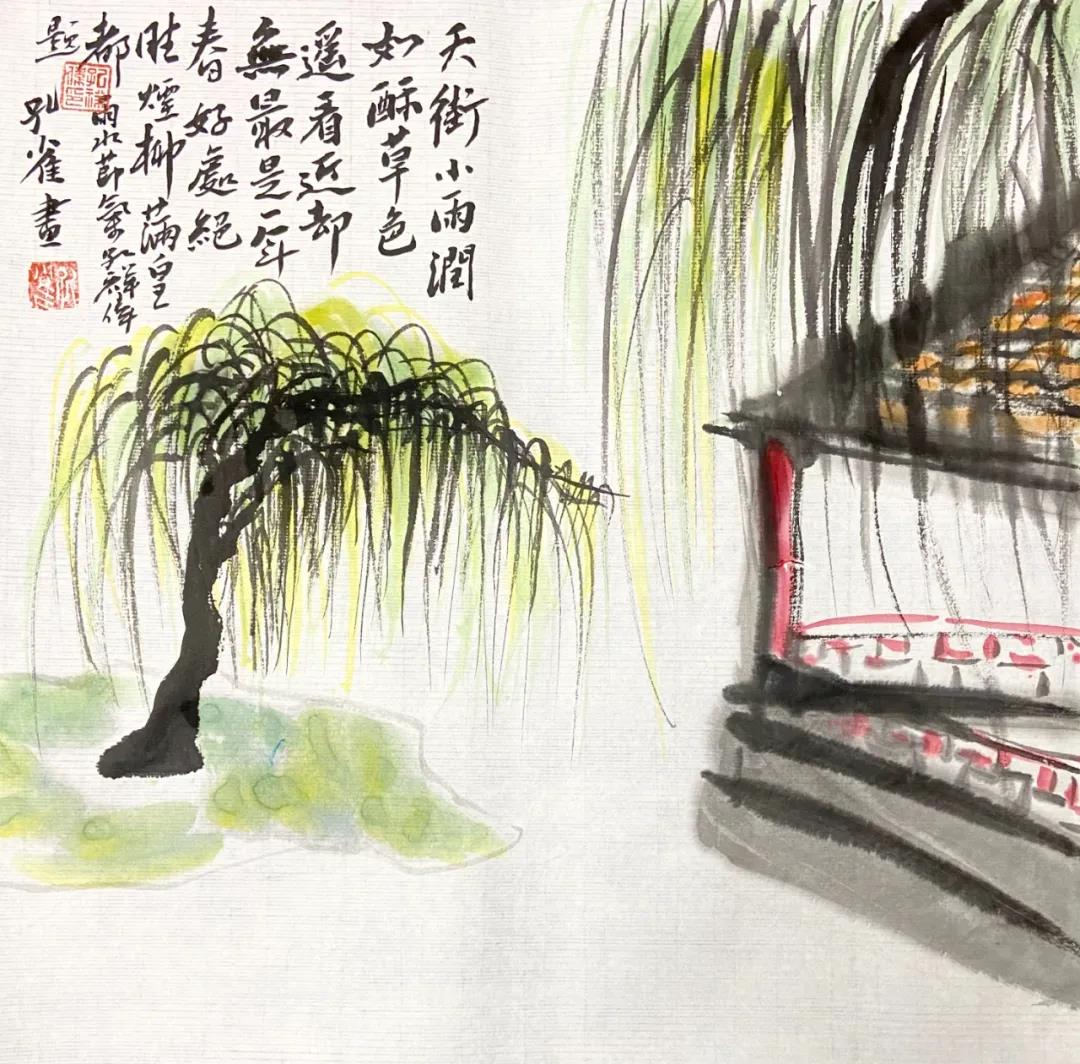 天街小雨潤
如酥草色
遥看近却
無最是一年
春好處絕
胜煙柳滿皇
都 雨水節氣孔祥偉
題
孔雀畫